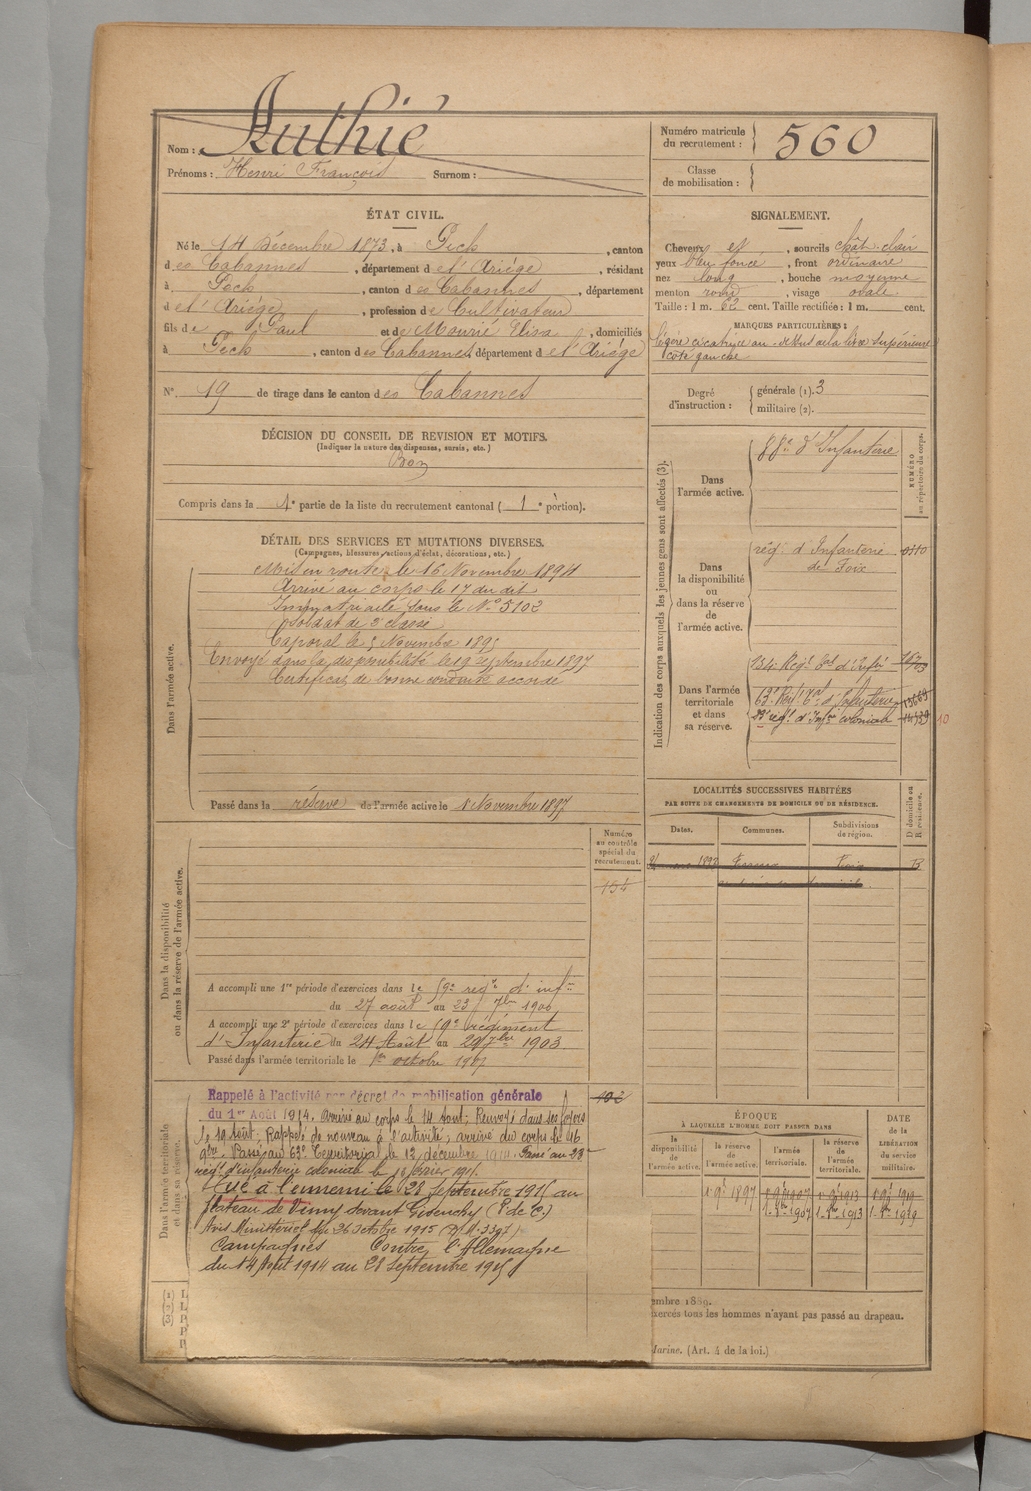 Nom : Authié
Prénoms : Henri François Surnom :
Numéro matricule du recrutement : 560
Classe de mobilisation :
ÉTAT CIVIL.
Né le 14 Décembre 1873, à Pech, canton
d es Cabannes, département d e l'Ariège, résidant
à Pech, canton d es Cabannes, département
d e l'Ariège, profession de Cultivateur
fils de Paul et de Mourié Elisa, domiciliés
à Pech, canton d es Cabannes, département d e l'Ariège
N° 19 de tirage dans le canton d es Cabannes
SIGNALEMENT.
Cheveux et, sourcils chât. clair
yeux bleu foncé, front ordinaire
nez long, bouche moyenne
menton rond, visage ovale.
Taille : 1 m. 62 cent. Taille rectifiée : 1 m. cent.
MARQUES PARTICULIÈRES :
légère cicatrice au-dessus de la lèvre supérieure
côté gauche
Degré d'instruction : générale (1). 3
militaire (2).
DÉCISION DU CONSEIL DE REVISION ET MOTIFS.
(Indiquer la nature des dispenses, sursis, etc.)
Bon
Compris dans la 1e partie de la liste du recrutement cantonal ( 1 e portion).
DÉTAIL DES SERVICES ET MUTATIONS DIVERSES.
(Campagnes, blessures, actions d'éclat, décorations, etc.)
Dans l'armée active.
Mis en route le 16 Novembre 1894
Arrivé au corps le 17 du dit
Immatriculé sous le N° 5102
soldat de 2e classe
Caporal le 5 Novembre 1895
Envoyé dans la disponibilité le 19 septembre 1897
Certificat de bonne conduite accordé
Passé dans la réserve de l'armée active le 1 Novembre 1897
Indication des corps auxquels les jeunes gens sont affectés (3).
NUMÉRO au répertoire du corps.
Dans l'armée active.
88e d'Infanterie
Dans la disponibilité ou dans la réserve de l'armée active.
rég. d'Infanterie
de Foix
Dans l'armée territoriale et dans sa réserve.
134e Régt Eal d'Infie
63e Régt Eal d'Infanterie 13669
23e régt d'Infie coloniale
10
LOCALITÉS SUCCESSIVES HABITÉES
PAR SUITE DE CHANGEMENTS DE DOMICILE OU DE RÉSIDENCE.
D domicile ou R résidence.
Dates.
Communes.
Subdivisions de région.
Foix
Dans la disponibilité ou dans la réserve de l'armée active.
Numéro au contrôle spécial du recrutement.
154
A accompli une 1re période d'exercices dans le 59e régt d'infie
du 27 août au 23 7bre 1900
A accompli une 2e période d'exercices dans le 59e régiment
d'Infanterie du 24 Août au 20 7bre 1903
Passé dans l'armée territoriale le 1er octobre 1907
Dans l'armée territoriale et dans sa réserve.
Rappelé à l'activité par décret de mobilisation générale
du 1er Août 1914. Arrivé au corps le 14 août; Renvoyé dans ses foyers
le 19 août; Rappelé de nouveau à l'activité, arrivé au corps le 16
9bre. Passé au 63e Territorial le 12 décembre 1914. Passé au 23e
régt d'infanterie coloniale le
Tué à l'ennemi le 28 Septembre 1915 au
plateau de Vimy devant Givenchy (P. de C.)
Avis Ministériel du 26 octobre 1915
Campagnes Contre l'Allemagne
du 14 Août 1914 au 28 Septembre 1915
ÉPOQUE
À LAQUELLE L'HOMME DOIT PASSER DANS
la disponibilité de l'armée active.
la réserve de l'armée active.
l'armée territoriale.
la réserve de l'armée territoriale.
DATE de la LIBÉRATION du service militaire.
1897
1907
1913
1919
embre 1889.
exercés tous les hommes n'ayant pas passé au drapeau.
Marine. (Art. 4 de la loi.)
(1)
(2)
(3)